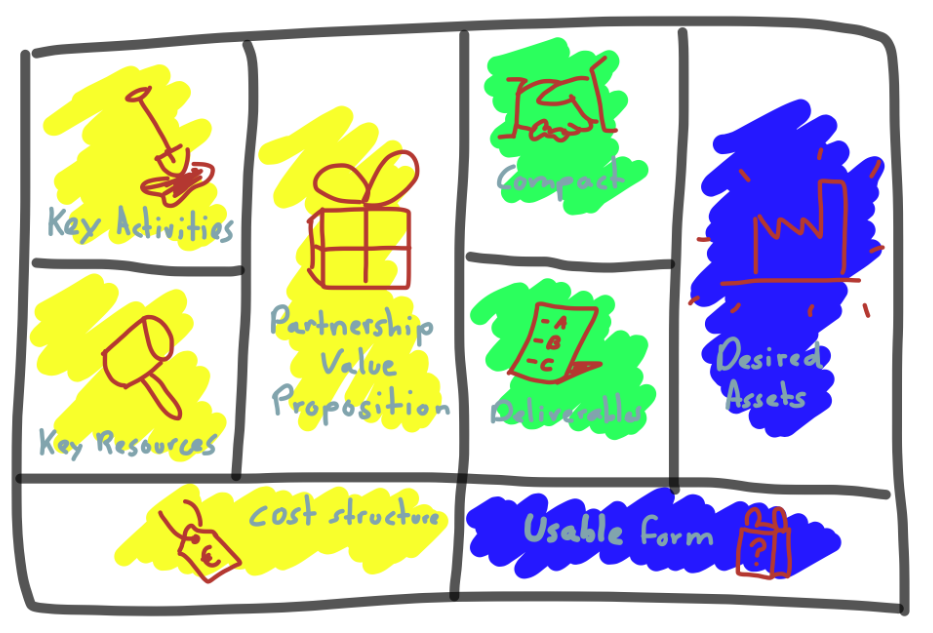 Key Activities
Key Resources
Partnership
Value
Proposition
Compact
- A
- B
- C
Deliverables
Desired
Assets
€
Cost structure
Usable form
?